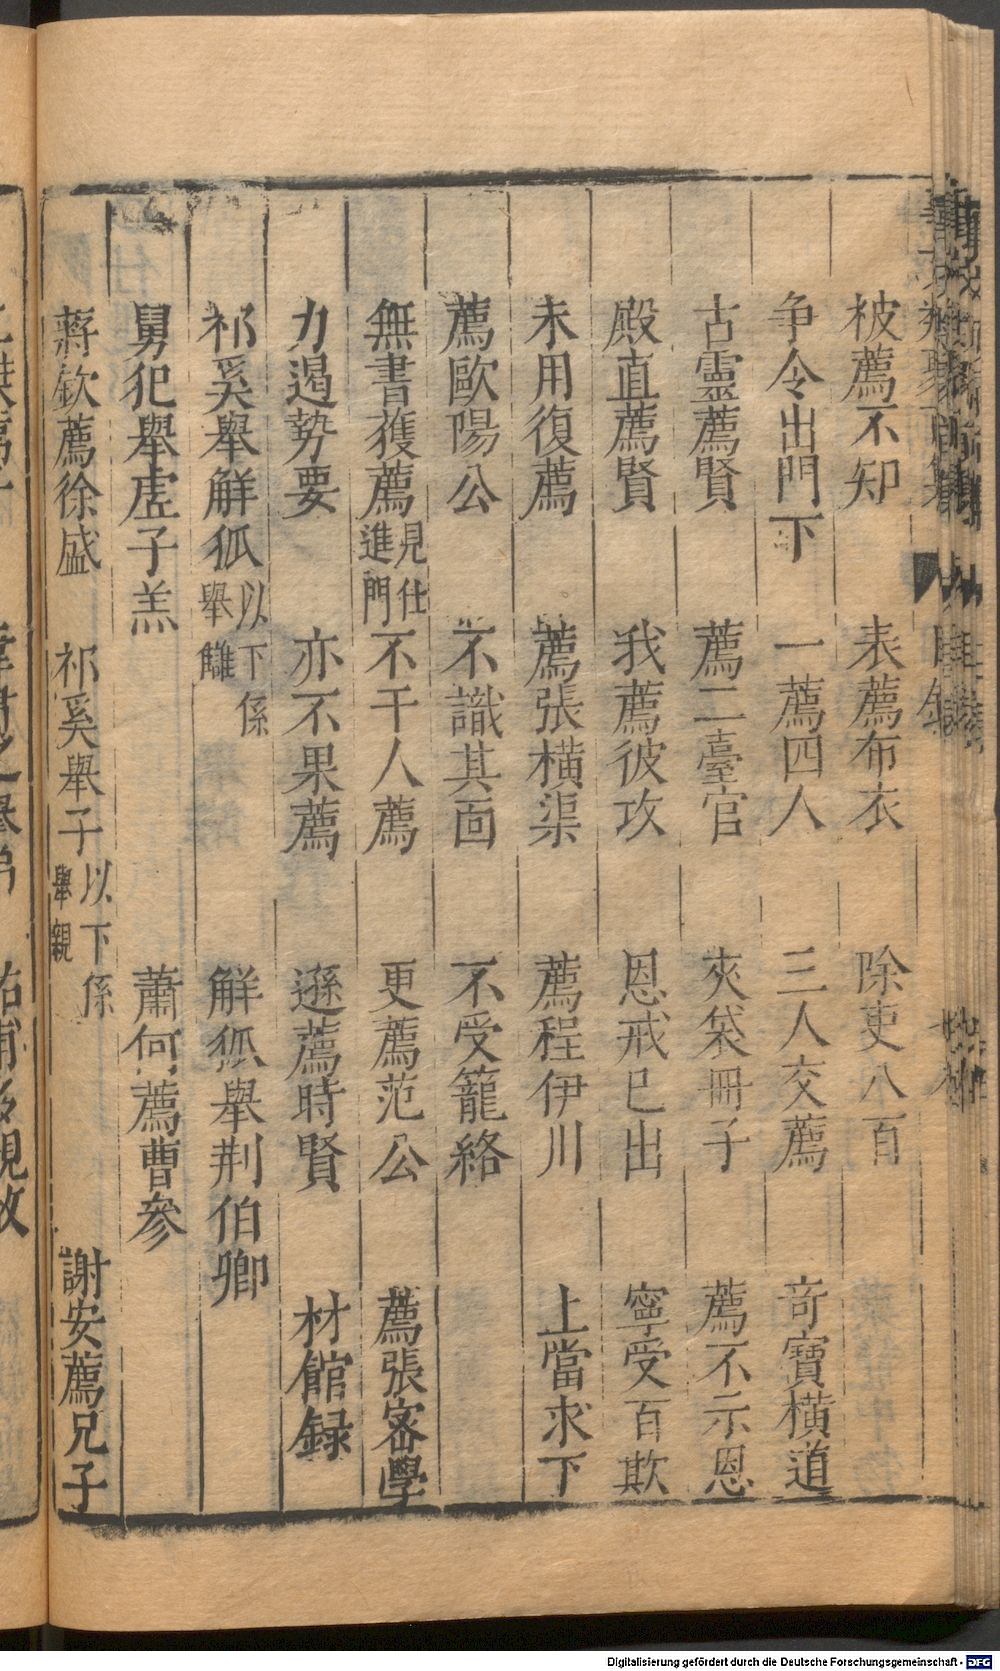 被薦不知 表薦布衣 除吏八百
争令出門下 一薦四人 三人交薦 竒寶橫道
古靈薦賢 薦二臺官 夾袋冊子 薦不示恩
殿直薦賢 我薦彼攻 恩戒已出 寧受百欺
未用復薦 薦張橫渠 薦程伊川 上當求下
薦歐陽公 不識其面 不受籠絡
無書獲薦 見仕進門 不干人薦 更薦范公 薦張密學
力遏勢要 亦不果薦 遜薦時賢 材館録
祁奚舉觧狐 以下係舉讎 觧狐舉荆伯卿
舅犯舉虗子羔 蕭何薦曹參
蔣欽薦徐盛 祁奚舉子 以下係舉親 謝安薦兄子
Digitalisierung gefördert durch die Deutsche Forschungsgemeinschaft - DFG